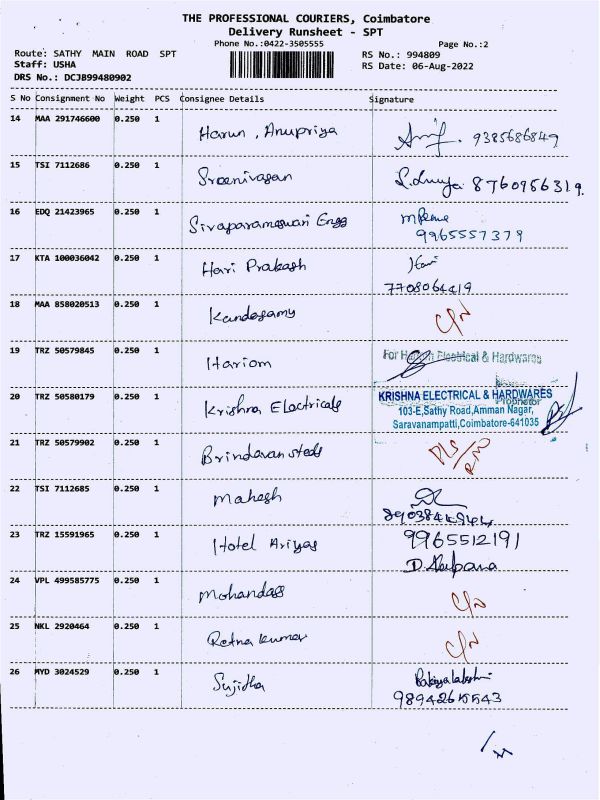 THE PROFESSIONAL COURIERS, Coimbatore
Delivery Runsheet - SPT
Phone No.:0422-3505555
Page No.:2
Route: SATHY MAIN ROAD SPT
RS No.: 994809
Staff: USHA
RS Date: 06-Aug-2022
DRS No.: DCJB99480902
S No Consignment No Weight PCS Consignee Details Signature
14 MAA 291746600 0.250 1 Harun, Anupriya 9385686849
15 TSI 7112686 0.250 1 Sreenivasan 8760956319.
16 EDQ 21423965 0.250 1 Sivaparameswari Engg
9965557379
17 KTA 100036042 0.250 1 Hari Prakash Hari
7708064419
18 MAA 858020513 0.250 1 Kandasamy C/N
19 TRZ 50579845 0.250 1 Hariom For Electrical & Hardwares
20 TRZ 50580179 0.250 1 Krishna Electricals KRISHNA ELECTRICAL & HARDWARES
Proprietor
103-E,Sathy Road,Amman Nagar,
Saravanampatti,Coimbatore-641035
21 TRZ 50579902 0.250 1 Brindavan steels
22 TSI 7112685 0.250 1 Mahesh
23 TRZ 15591965 0.250 1 Hotel Ariyas 9965512191
24 VPL 499585775 0.250 1 Mohandass C/N
25 NKL 2920464 0.250 1 Retna kumar C/N
26 MYD 3024529 0.250 1 Sujitha Bakiyalakshmi